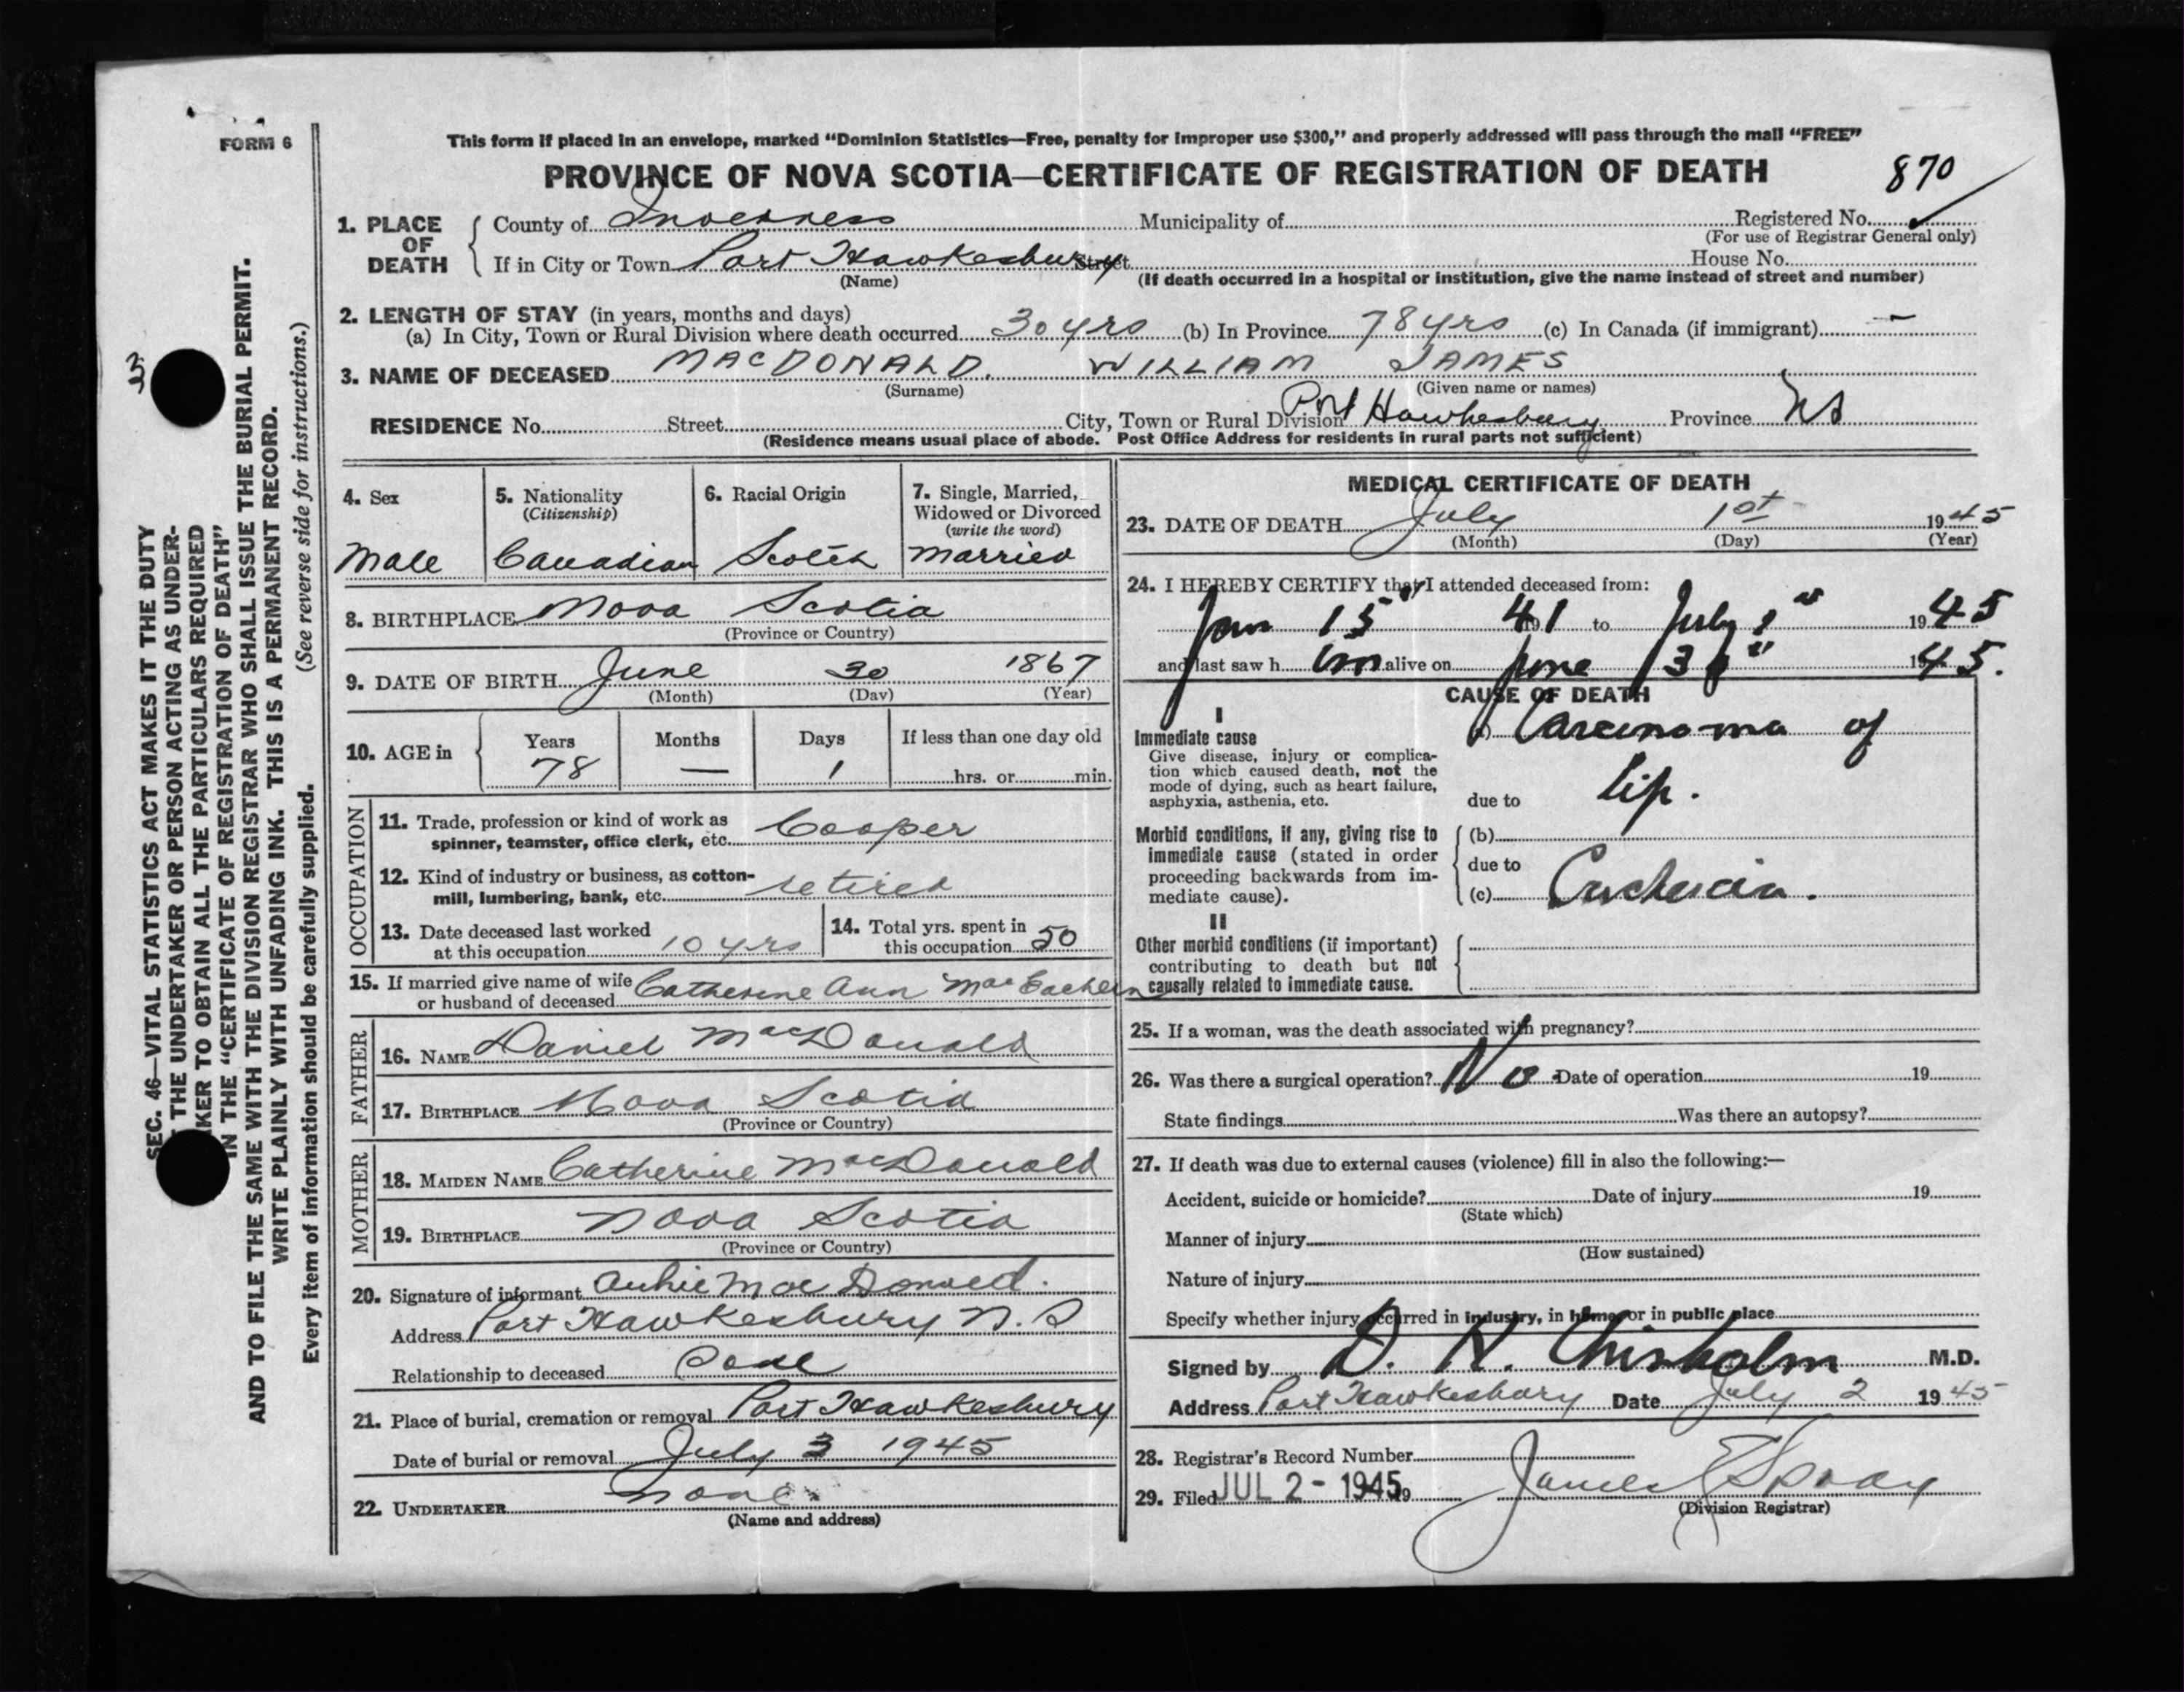 FORM 6
This form if placed in an envelope, marked “Dominion Statistics—Free, penalty for improper use $300,” and properly addressed will pass through the mail “FREE”
PROVINCE OF NOVA SCOTIA—CERTIFICATE OF REGISTRATION OF DEATH
870
1. PLACE OF DEATH
County of Inverness Municipality of Registered No.
(For use of Registrar General only)
If in City or Town Port Hawkesbury Street House No.
(Name) (If death occurred in a hospital or institution, give the name instead of street and number)
2. LENGTH OF STAY (in years, months and days)
(a) In City, Town or Rural Division where death occurred 30 yrs (b) In Province 78 yrs (c) In Canada (if immigrant) —
3. NAME OF DECEASED MACDONALD. WILLIAM JAMES
(Surname) (Given name or names)
RESIDENCE No. Street City, Town or Rural Division Port Hawkesbury Province NS
(Residence means usual place of abode. Post Office Address for residents in rural parts not sufficient)
4. Sex
Male
5. Nationality
(Citizenship)
Canadian
6. Racial Origin
Scotch
7. Single, Married,
Widowed or Divorced
(write the word)
Married
8. BIRTHPLACE Nova Scotia
(Province or Country)
9. DATE OF BIRTH June 30 1867
(Month) (Day) (Year)
10. AGE in
Years Months Days If less than one day old
78 — 1 hrs. or min.
OCCUPATION
11. Trade, profession or kind of work as
spinner, teamster, office clerk, etc. Cooper
12. Kind of industry or business, as cotton-
mill, lumbering, bank, etc. retired
13. Date deceased last worked
at this occupation 10 yrs
14. Total yrs. spent in
this occupation 50
15. If married give name of wife
or husband of deceased Catherine Ann MacEachern
FATHER
16. NAME Daniel MacDonald
17. BIRTHPLACE Nova Scotia
(Province or Country)
MOTHER
18. MAIDEN NAME Catherine MacDonald
19. BIRTHPLACE Nova Scotia
(Province or Country)
20. Signature of informant MacDonald.
Address Port Hawkesbury N.S
Relationship to deceased
21. Place of burial, cremation or removal Port Hawkesbury
Date of burial or removal July 3 1945
22. UNDERTAKER none.
(Name and address)
MEDICAL CERTIFICATE OF DEATH
23. DATE OF DEATH July 1st 1945
(Month) (Day) (Year)
24. I HEREBY CERTIFY that I attended deceased from:
Jan 15" 41 to July 1" 1945
and last saw him alive on June 1945.
CAUSE OF DEATH
I
Immediate cause
Give disease, injury or complica-
tion which caused death, not the
mode of dying, such as heart failure,
asphyxia, asthenia, etc.
(a) Carcinoma of
due to lip.
Morbid conditions, if any, giving rise to
immediate cause (stated in order
proceeding backwards from im-
mediate cause).
(b)
due to
(c) Cachexia.
II
Other morbid conditions (if important)
contributing to death but not
causally related to immediate cause.
25. If a woman, was the death associated with pregnancy?
26. Was there a surgical operation? No Date of operation 19
State findings Was there an autopsy?
27. If death was due to external causes (violence) fill in also the following:—
Accident, suicide or homicide? Date of injury 19
(State which)
Manner of injury
(How sustained)
Nature of injury
Specify whether injury occurred in industry, in home, or in public place
Signed by D. H. Chisholm M.D.
Address Port Hawkesbury Date July 2 1945
28. Registrar's Record Number
29. Filed JUL 2 - 1945 19 James
(Division Registrar)
SEC. 46—VITAL STATISTICS ACT MAKES IT THE DUTY
THE UNDERTAKER OR PERSON ACTING AS UNDER-
KER TO OBTAIN ALL THE PARTICULARS REQUIRED
IN THE “CERTIFICATE OF REGISTRATION OF DEATH”
AND TO FILE THE SAME WITH THE DIVISION REGISTRAR WHO SHALL ISSUE THE BURIAL PERMIT.
WRITE PLAINLY WITH UNFADING INK. THIS IS A PERMANENT RECORD.
Every item of information should be carefully supplied. (See reverse side for instructions.)